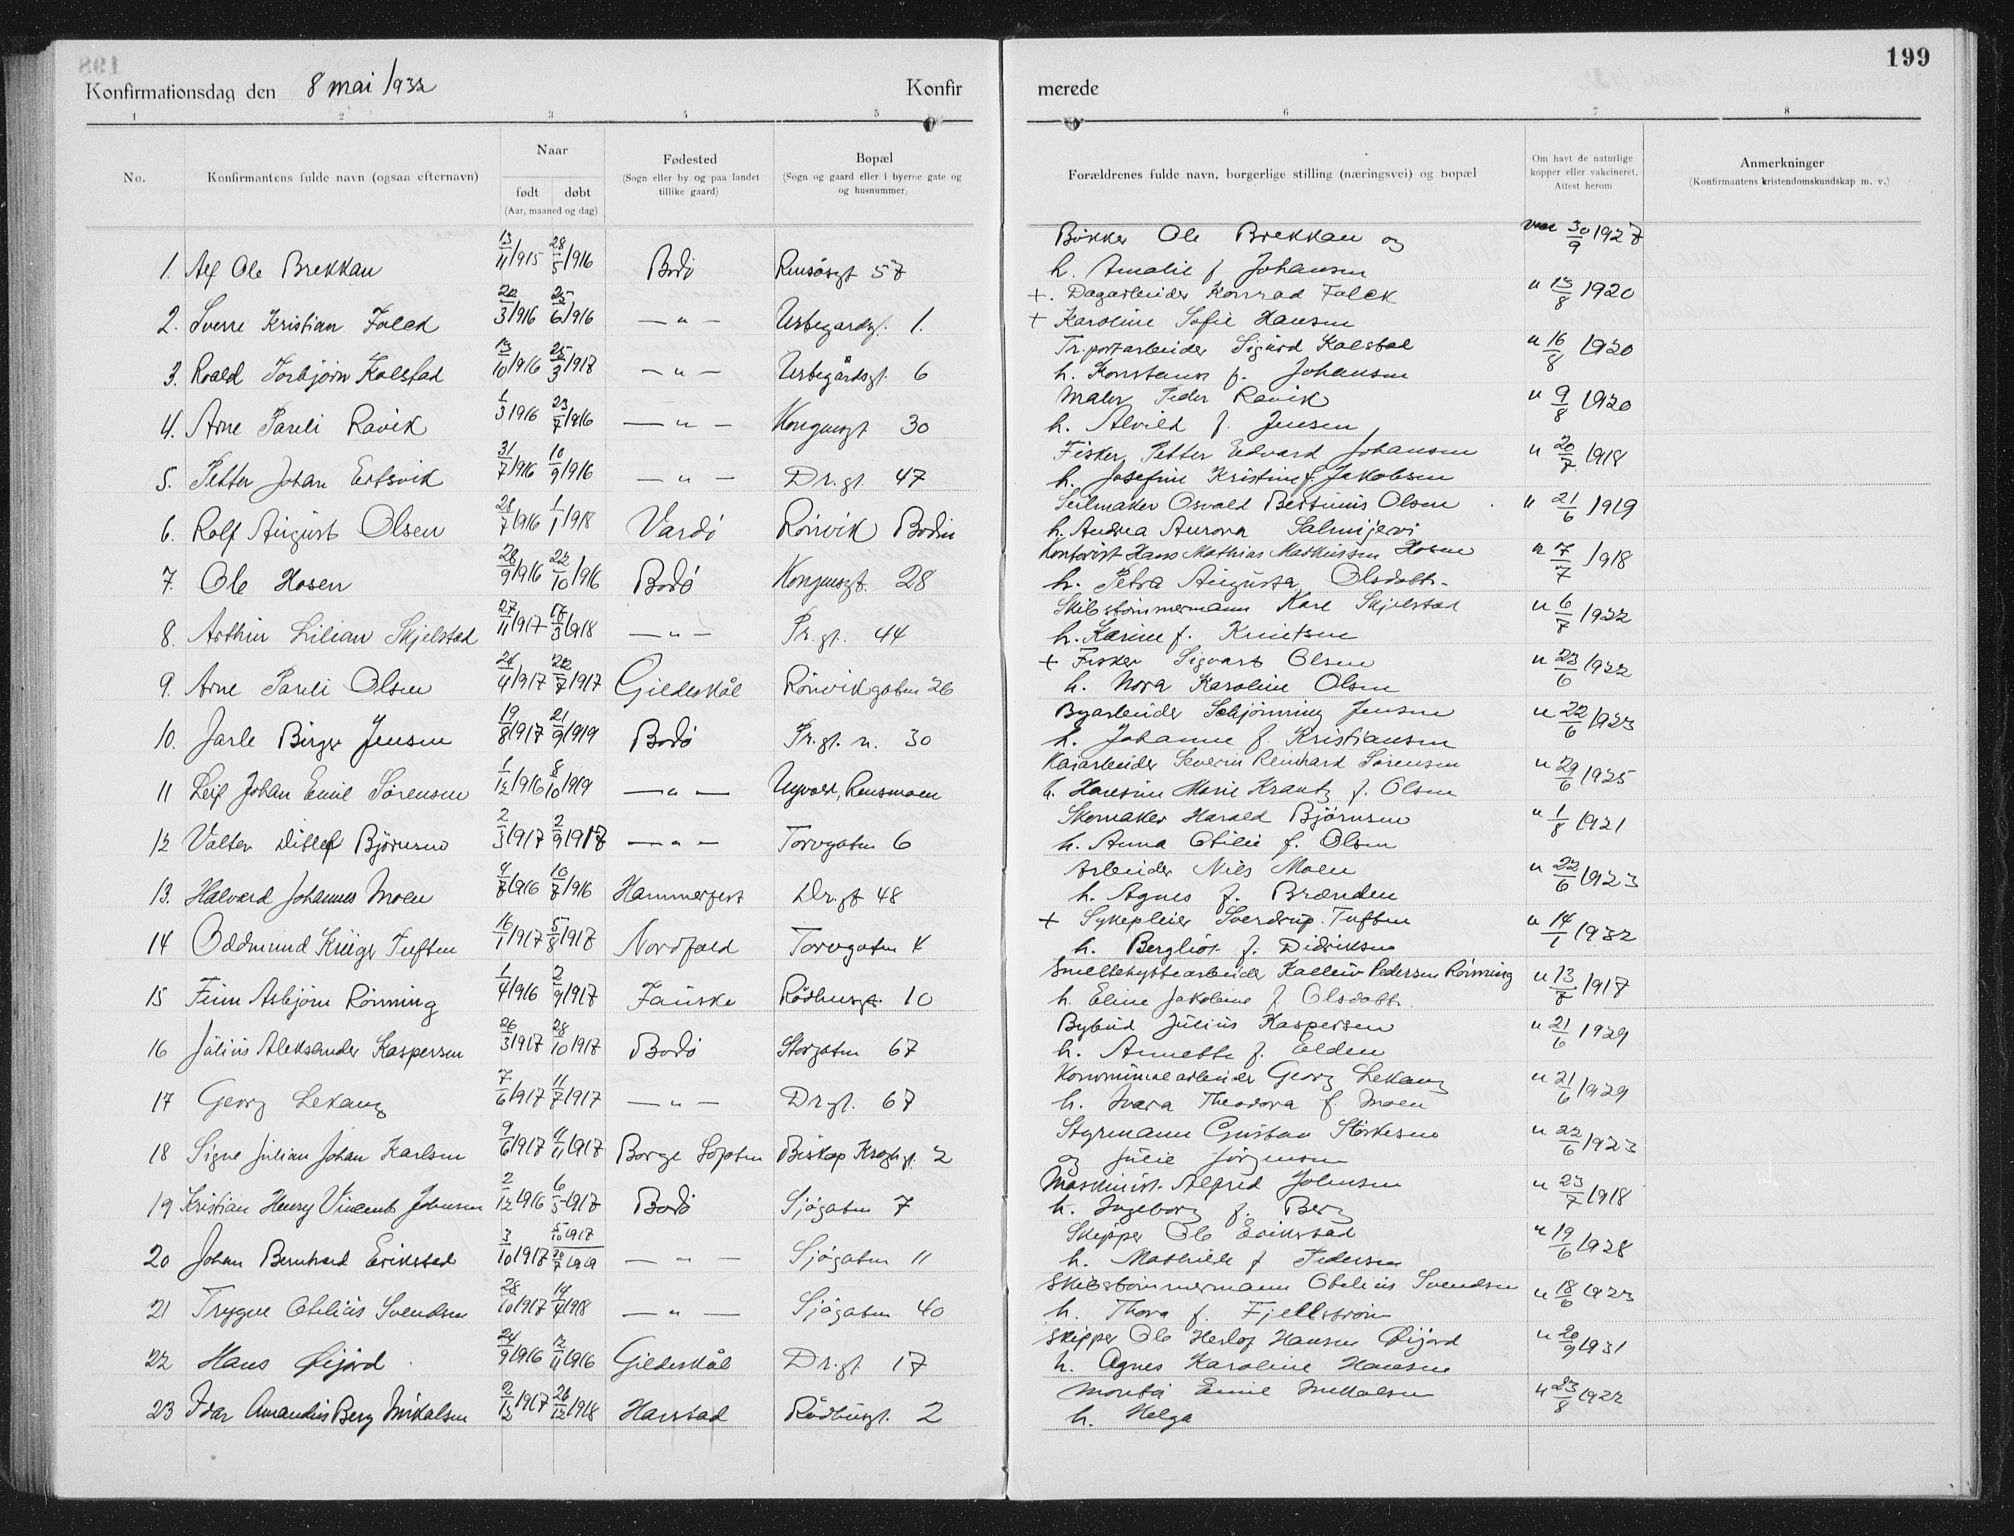 199
Konfirmationsdag den 8 mai 1932 Konfir merede
1 2 3 4 5 6 7 8
No. Konfirmantens fulde navn (ogsaa efternavn) Naar født døbt (Aar, maaned og dag) Fødested (Sogn eller by og paa landet tillike gaard) Bopæl (Sogn og gaard eller i byerne gate og og husnummer) Forældrenes fulde navn, borgerlige stilling (næringsvei) og bopæl Om havt de naturlige kopper eller vakcineret. Attest herom Anmerkninger (Konfirmantens kristendomskundskap m. v.)
1. Alf Ole Brekkan 13/11 1915 28/5 1916 Bodö Rensåsgt 57 Bökker Ole Brekkan og vac 30/9 1927
h. Amalie f. Johansen
2. Sverre Kristian Falck 3/1916 6/1916 — " — 1. +. Dagarbeider Konrad Falck " 13/8 1920
+ Karoline Sofie Hansen
3. Roald Torbjörn Kolstad 13/10 1916 25/3 1917 — " — 6 Tr.portarbeider Sigurd Kolstad " 16/8 1920
h. Konstanse f. Johansen
4. Arne Pareli Ravik 1/3 1916 23/7 1916 — " — Kongensgt 30 Maler Peder Ravik " 9/8 1920
h. Alvild f. Jensen
5. Petter Johan Ertsvik 31/7 1916 10/9 1916 — " — Dr.gt 47 Fisker Petter Edvard Johansen " 20/7 1918
h. Josefine Kristine f. Jakobsen
6. Rolf August Olsen 28/7 1916 1/1 1918 Vardö Rönvik Bodin Seilmaker Osvald Bertinius Olsen " 21/6 1919
h. Andrea Aurora Salmijervi
7. Ole Hosen 28/9 1916 22/10 1916 Bodö Kongensgt. 28 Kontorist Hans Mathias Markussen Hosen " 7/7 1918
h. Petra Augusta Olsdatt.
8. Arthur Lilian Skjelstad 27/11 1917 3/1918 — " — Pr.gt. 44 Skibstömmermann Karl Skjelstad " 6/7 1922
h. Karine f. Knutsen
9. Arne Pareli Olsen 4/1917 7/1917 Gildeskål Rönvikgaten 26 + Fisker Sigvart Olsen " 23/6 1922
h. Nora Karoline Olsen
10. Jarle Birger Jensen 19/8 1917 21/9 1919 Bodö Pr.gt. n. 30 Byarbeider Schjönning Jensen " 22/6 1923
h. Johanne f. Kristiansen
11 Leif Johan Emil Sörensen 1/12 1916 8/10 1919 — " — Nyvold, Rensmoen Kaiarbeider Severin Reinhard Sörensen " 29/6 1925
h. Hansine Marie Krantz f. Olsen
12 Valter Ditlef Björnsen 2/3 1917 2/9 1917 — " — Torvgaten 6 Skomaker Harald Björnsen " 1/8 1921
h. Anna Otilie f. Olsen
13. Halvard Johannes Moen 1916 16/7 1916 Hammerfest Dr.gt 48 Arbeider Nils Moen " 22/6 1923
h. Agnes f. Brænden
14 Oddmund Krüger Tuften 16/1 1917 5/8 1917 Nordfold Torvgaten 4 + Sykepleier Sverdrup Tuften " 14/1 1932
h. Bergliot f. Didriksen
15 Finn Asbjörn Rönning 1/4 1916 2/9 1917 Fauske Rådhusgt 10 Smeltehyttearbeider Kallein Pedersen Rönning " 13/7 1917
h. Eline Jakobine f. Olsdatt.
16 Julius Aleksander Kaspersen 26/3 1917 28/10 1917 Bodö Storgaten 67 Bybud Julius Kaspersen " 21/6 1929
h. Annette f. Elden
17 Georg Lekang 7/6 1917 11/7 1917 — " — Dr.gt. 67 Kommunearbeider Georg Lekang " 21/6 1929
h. Ivara Theodora f. Moen
18 Signe Julian Johan Karlsen 9/6 1917 4/11 1917 Borge Lofoten Biskop Kroghgt. 2 Styrmann Gustav Störkesen " 22/6 1923
og Julie Jörgensen
19 Kristian Henry Vincent Johnsen 2/12 1916 6/5 1917 Bodö Sjögaten 7 Maskinist Alfred Johnsen " 23/7 1918
h. Ingeborg f. Berg
20 Johan Bernhard Erikstad 3/10 1917 5/10 1917 20/7 1919 — " — Sjögaten 11 Skipper Ole Erikstad " 19/6 1928
h. Mathilde f. Pedersen
21 Trygve Otelius Svendsen 28/10 1917 14/4 1918 — " — Sjögaten 40 Skibstömmermann Otelius Svendsen " 18/6 1923
h. Thora f. Fjellström
22 Hans Øijord 24/9 1916 12/11 1916 Gildeskål Dr.gt 17 Skipper Ole Herlof Hansen Øijord " 20/9 1931
h. Agnes Karoline Hansen
23 Ivar Amandus Berg Mikalsen 2/12 1917 26/12 1918 Harstad Rådhusgt. 2 Montör Emil Mikalsen " 23/8 1922
h. Helga